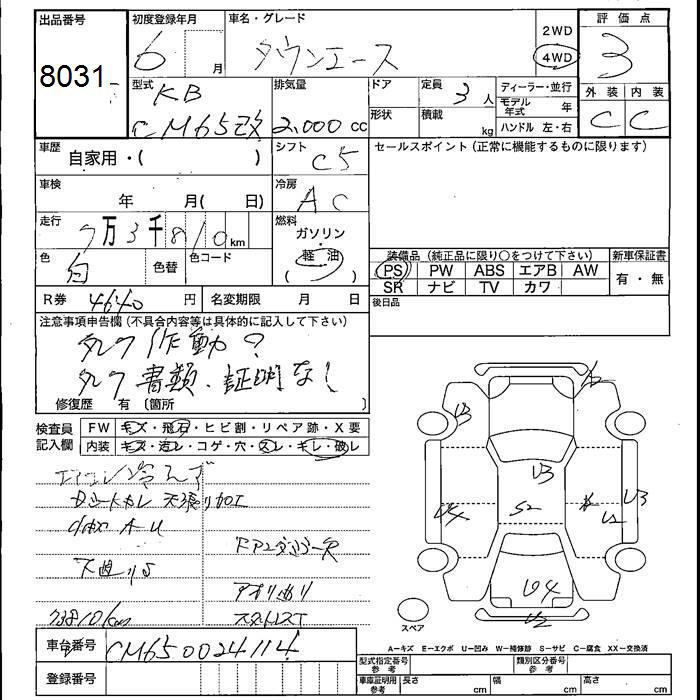 出品番号
8031
初度登録年月
6 月
車名・グレード
タウンエース
2WD
4WD
評価点
3
外装 内装
C C
型式
KB
CM65改
排気量
2,000 cc
ドア
形状
定員
3 人
積載
kg
ディーラー・並行
モデル年式 年
ハンドル 左・右
車歴
自家用・( )
シフト
C5
セールスポイント (正常に機能するものに限ります)
車検
年 月( 日)
冷房
AC
走行
7万3千810km
燃料
ガソリン
(軽油)
色
白
色替
色コード
装備品 (純正品に限り○をつけて下さい)
新車保証書
PS PW ABS エアB AW
SR ナビ TV カワ
有・無
R券 4640 円
名変期限 月 日
後日品
注意事項申告欄 (不具合内容等は具体的に記入して下さい)
タンク作動?
タンク書類、証明なし
修復歴 有 〔箇所 〕
検査員記入欄
FW キズ・飛石・ヒビ割・リペア跡・X要
内装 キズ・汚レ・コゲ・穴・スレ・キレ・破レ
エアコン冷えず
Dシートキレ 天張り加工
下廻りS
73810km
A2
U3
U3
U4
S2
U3
U2
U4
U2
スペア
A−キズ E−エクボ U−凹み W−補修跡 S−サビ C−腐食 XX−交換済
車台番号
CM650024114
登録番号
型式指定番号
参考
類別区分番号
参考
車庫証明用
参考
長さ cm
幅 cm
高さ cm